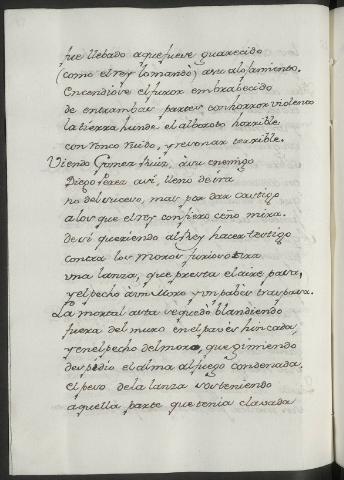 fue llebado a que fuese guarecido
(como el rey lo mandò) a su alojamiento.
Enciendiose el furor embrabecido
de entrambas partes con horror violento
la tierra hunde el alboroto horrible
con ronco ruido, y resonar terrible.
Viendo Gomez Ruiz, à su enemigo
Diego Perez asi, lleno de ira
no del suceso, mas por dar castigo
a los que el rey con fiero ceño mira.
de si queriendo al Rey hacer testigo
contra los moros furioso tira
una lanza, que presta el aire pasa,
y el pecho à un moro y un pabes traspasa.
La mortal asta se quedò blandiendo
fuera del muro en el pavès hincada,
y en el pecho del moro, que gimiendo
despidio el alma al fuego condenada,
el peso de la lanza sosteniendo
aquella parte que tenia clavada